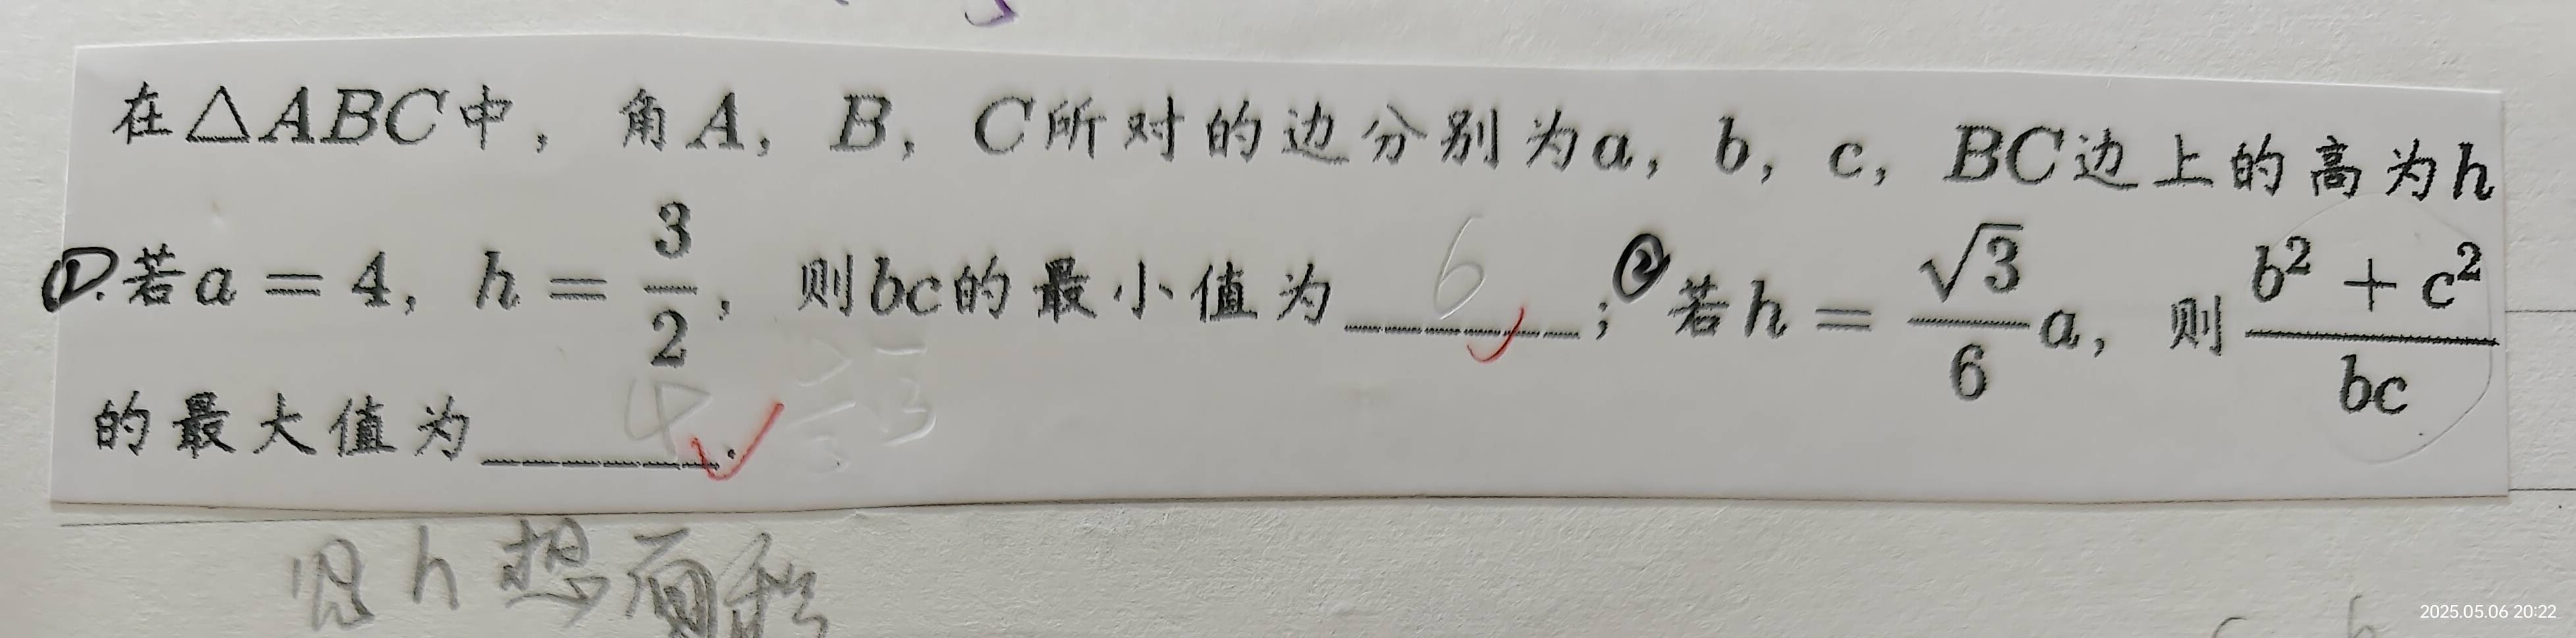 在△ABC中，角A，B，C所对的边分别为a，b，c，BC边上的高为h
①.若a = 4，h = 3/2，则bc的最小值为 6 ；②若h = √3/6 a，则 (b² + c²)/bc
的最大值为 4 .
见h想面积
2025.05.06 20:22